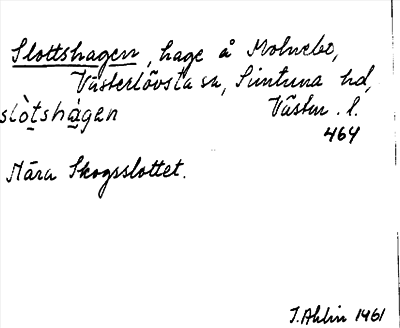 Slottshagen, hage å Molnebo,
Västerlövsta sn, Simtuna hd,
slòtshàgen Västm. l.
464
Nära Skogsslottet.
J. Ahlin 1961